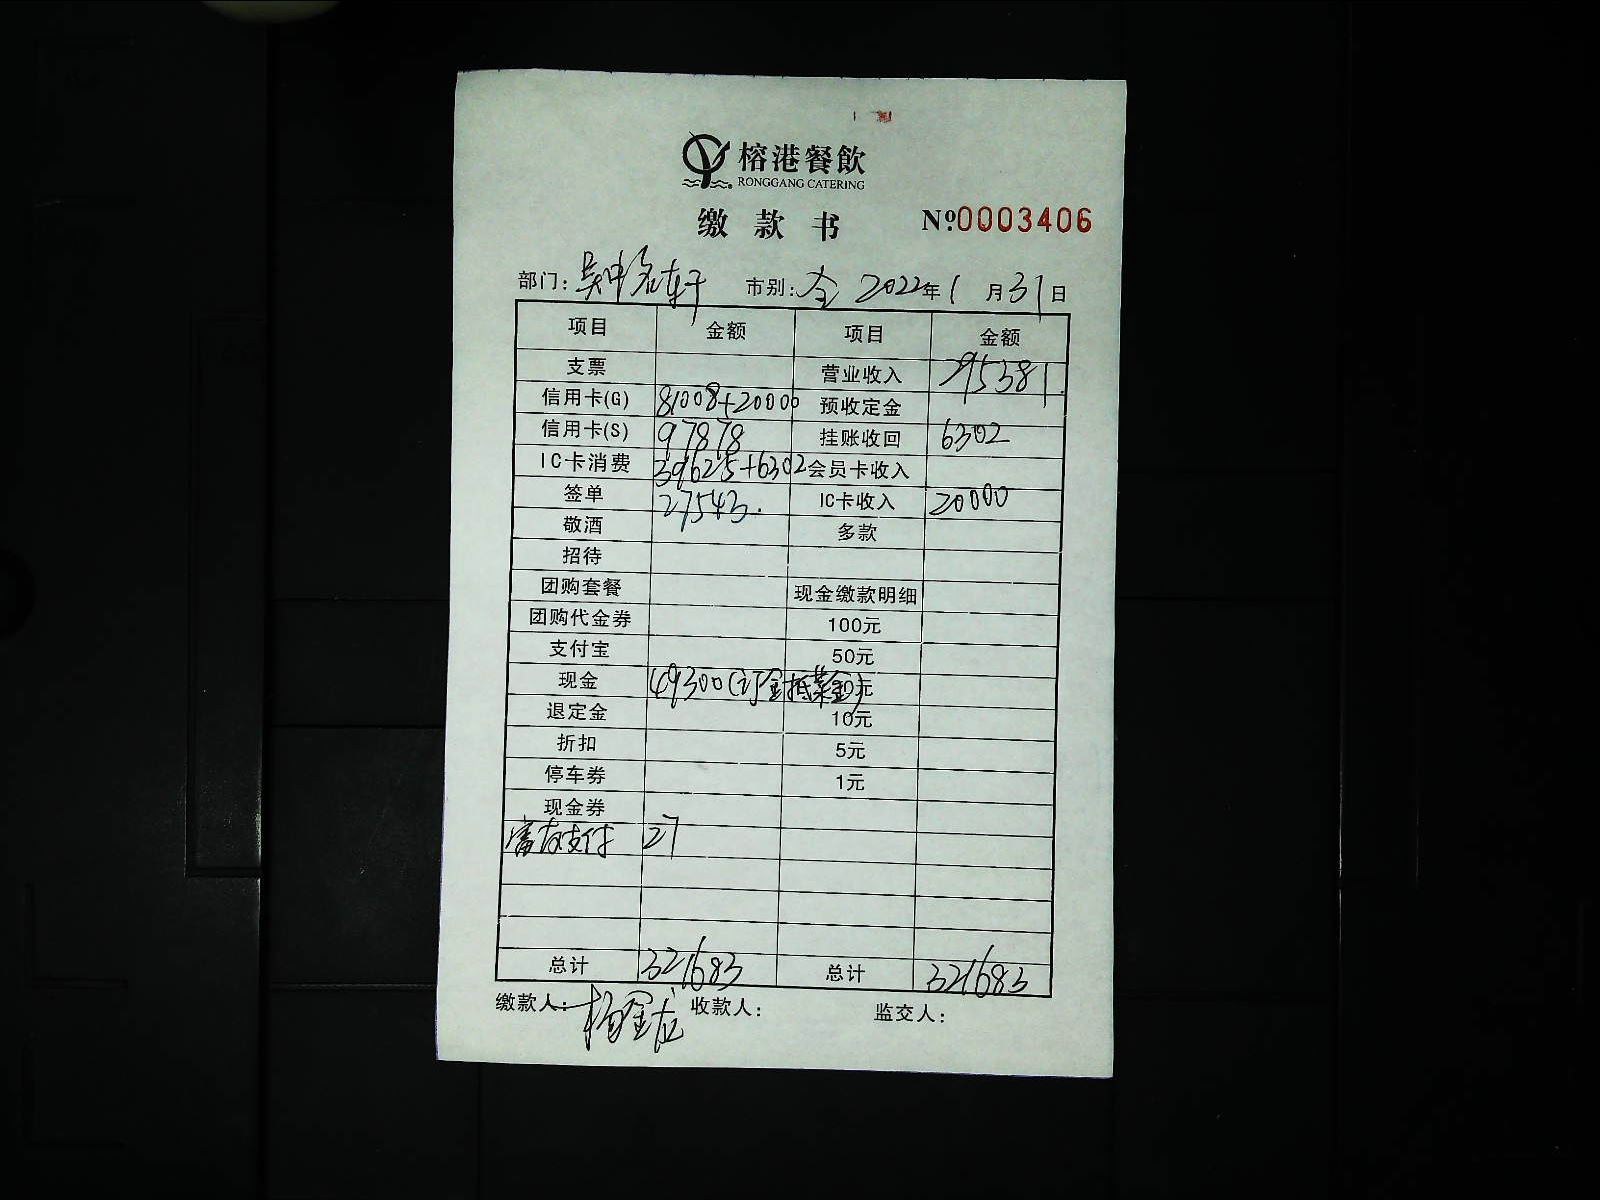 榕港餐飲
RONGGANG CATERING
缴款书 №0003406
部门：吴中名轩 市别：全 2022年1月31日
项目 金额 项目 金额
支票 营业收入 295381
信用卡(G) 81008+20000 预收定金
信用卡(S) 97878 挂账收回 6302
IC卡消费 39625+6302 会员卡收入
签单 27543. IC卡收入 20000
敬酒 多款
招待
团购套餐 现金缴款明细
团购代金券 100元
支付宝 50元
现金 49300(订金抵菜金) 20元
退定金 10元
折扣 5元
停车券 1元
现金券
富友支付 27
总计 321683 总计 321683
缴款人： 收款人： 监交人：